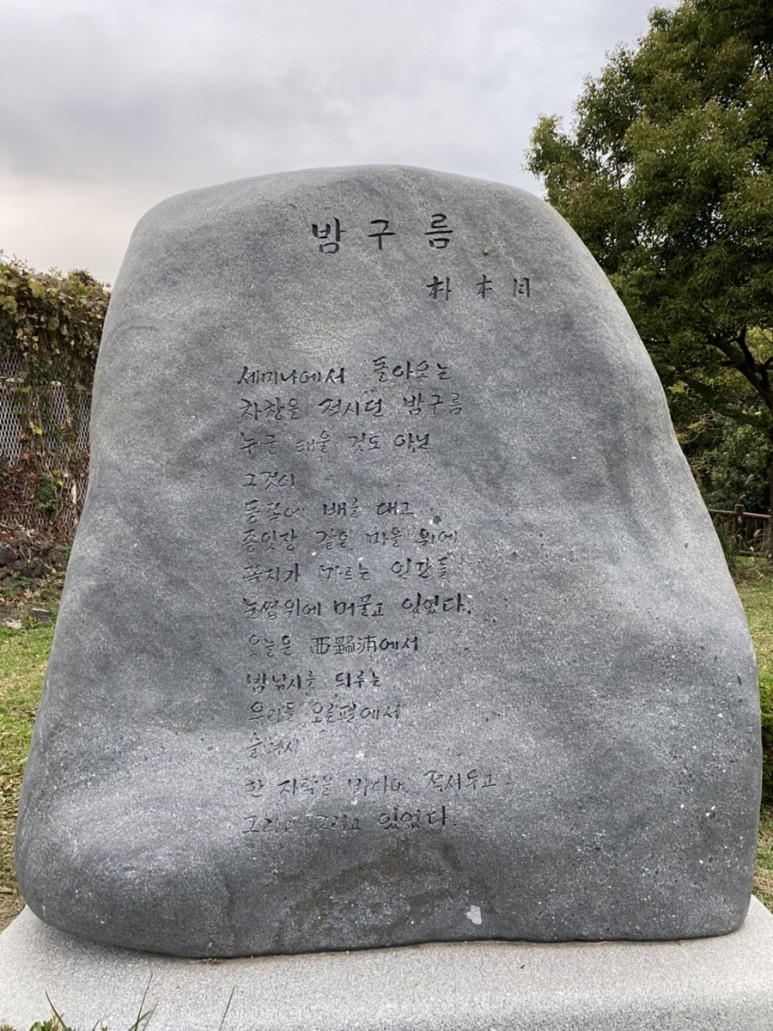 밤구름
朴木月
세미나에서 돌아오는
차창을 적시던 밤구름
누굴 태울 것도 아닌
그것이
동쪽에 배를 대고
종잇장 같은 마을 위에
인간들
눈썹위에 머물고 있었다.
오늘은 西歸浦에서
밤낚시를 드리우는
우리들 오른편에서
슬며시
한 자락을 바다에 적셔두고
그리고 그리고 있었다.